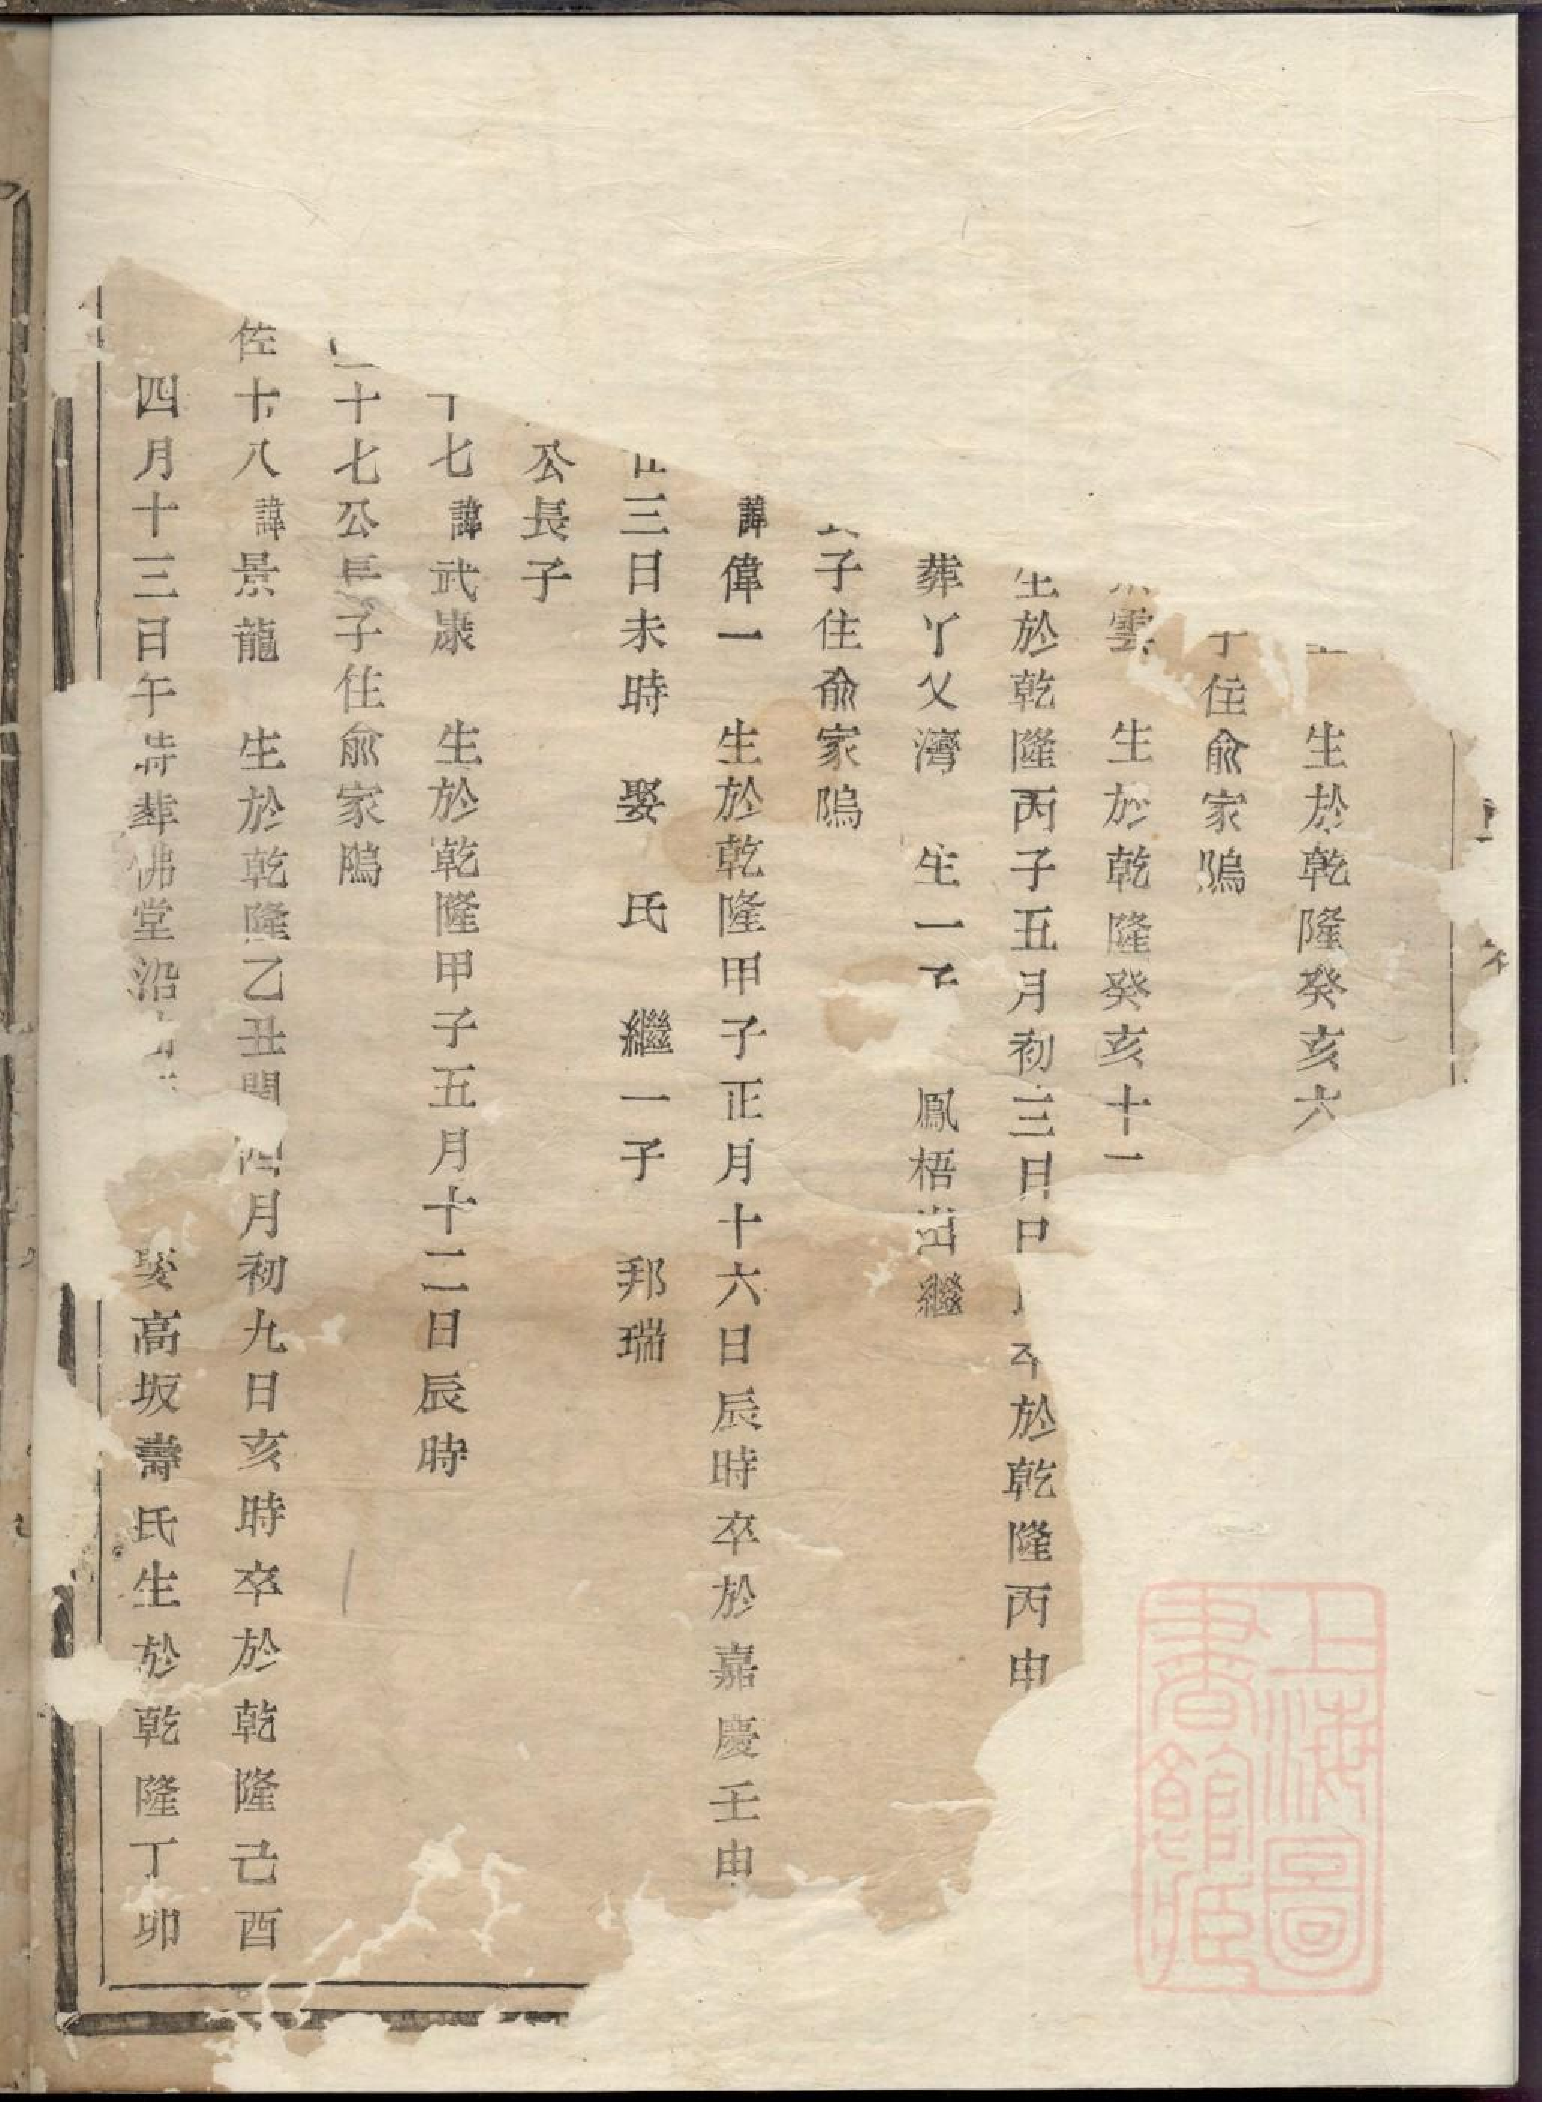 生於乾隆癸亥六
住俞家隖
雲 生於乾隆癸亥十一
生於乾隆丙子五月初三日 卒於乾隆丙申
葬丫乂濟 生一子 鳳梧出繼
子住俞家隖
諱偉一 生於乾隆甲子正月十六日辰時卒於嘉慶壬申
三日未時 娶 氏 繼一子 邦瑞
公長子
七諱武康 生於乾隆甲子五月十二日辰時
十七公長子住俞家隖
佐十八諱景龍 生於乾隆乙丑閏四月初九日亥時卒於乾隆己酉
四月十三日午時葬佛堂沿 娶高坂壽氏生於乾隆丁卯
上海圖書館藏